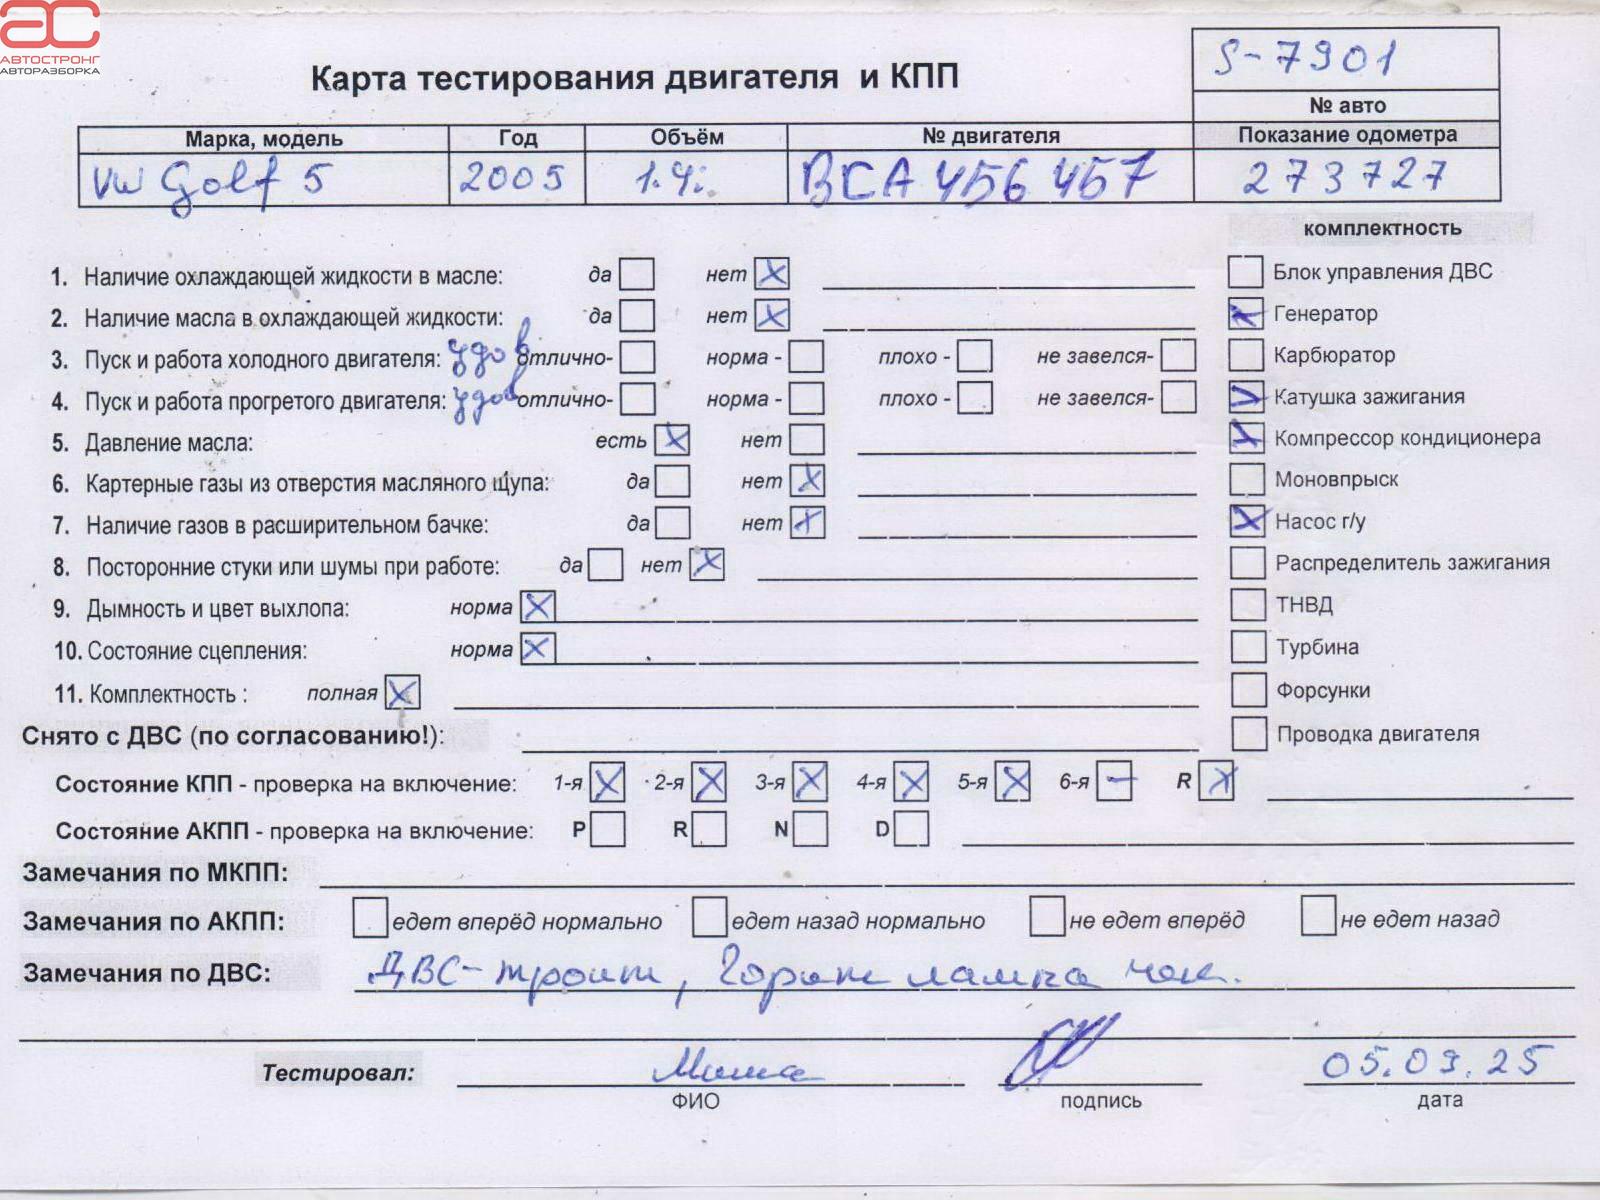 АС
АВТОСТРОНГ
АВТОРАЗБОРКА
Карта тестирования двигателя и КПП
S-7901
№ авто
Марка, модель Год Объём № двигателя Показание одометра
VW Golf 5 2005 1.4i BCA 456 457 273727
комплектность
1. Наличие охлаждающей жидкости в масле: да нет X
Блок управления ДВС
2. Наличие масла в охлаждающей жидкости: да нет X
X Генератор
3. Пуск и работа холодного двигателя: удов отлично- норма - плохо - не завелся-
Карбюратор
4. Пуск и работа прогретого двигателя: удов отлично- норма - плохо - не завелся-
V Катушка зажигания
5. Давление масла: есть X нет
X Компрессор кондиционера
6. Картерные газы из отверстия масляного щупа: да нет X
Моновпрыск
7. Наличие газов в расширительном бачке: да нет X
X Насос г/у
8. Посторонние стуки или шумы при работе: да нет X
Распределитель зажигания
9. Дымность и цвет выхлопа: норма X
ТНВД
10. Состояние сцепления: норма X
Турбина
11. Комплектность : полная X
Форсунки
Снято с ДВС (по согласованию!):
Проводка двигателя
Состояние КПП - проверка на включение: 1-я X 2-я X 3-я X 4-я X 5-я X 6-я – R X
Состояние АКПП - проверка на включение: P R N D
Замечания по МКПП:
Замечания по АКПП: едет вперёд нормально едет назад нормально не едет вперёд не едет назад
Замечания по ДВС: ДВС-троит, Горит лампа чек.
Тестировал: Миша 05.09.25
ФИО подпись дата